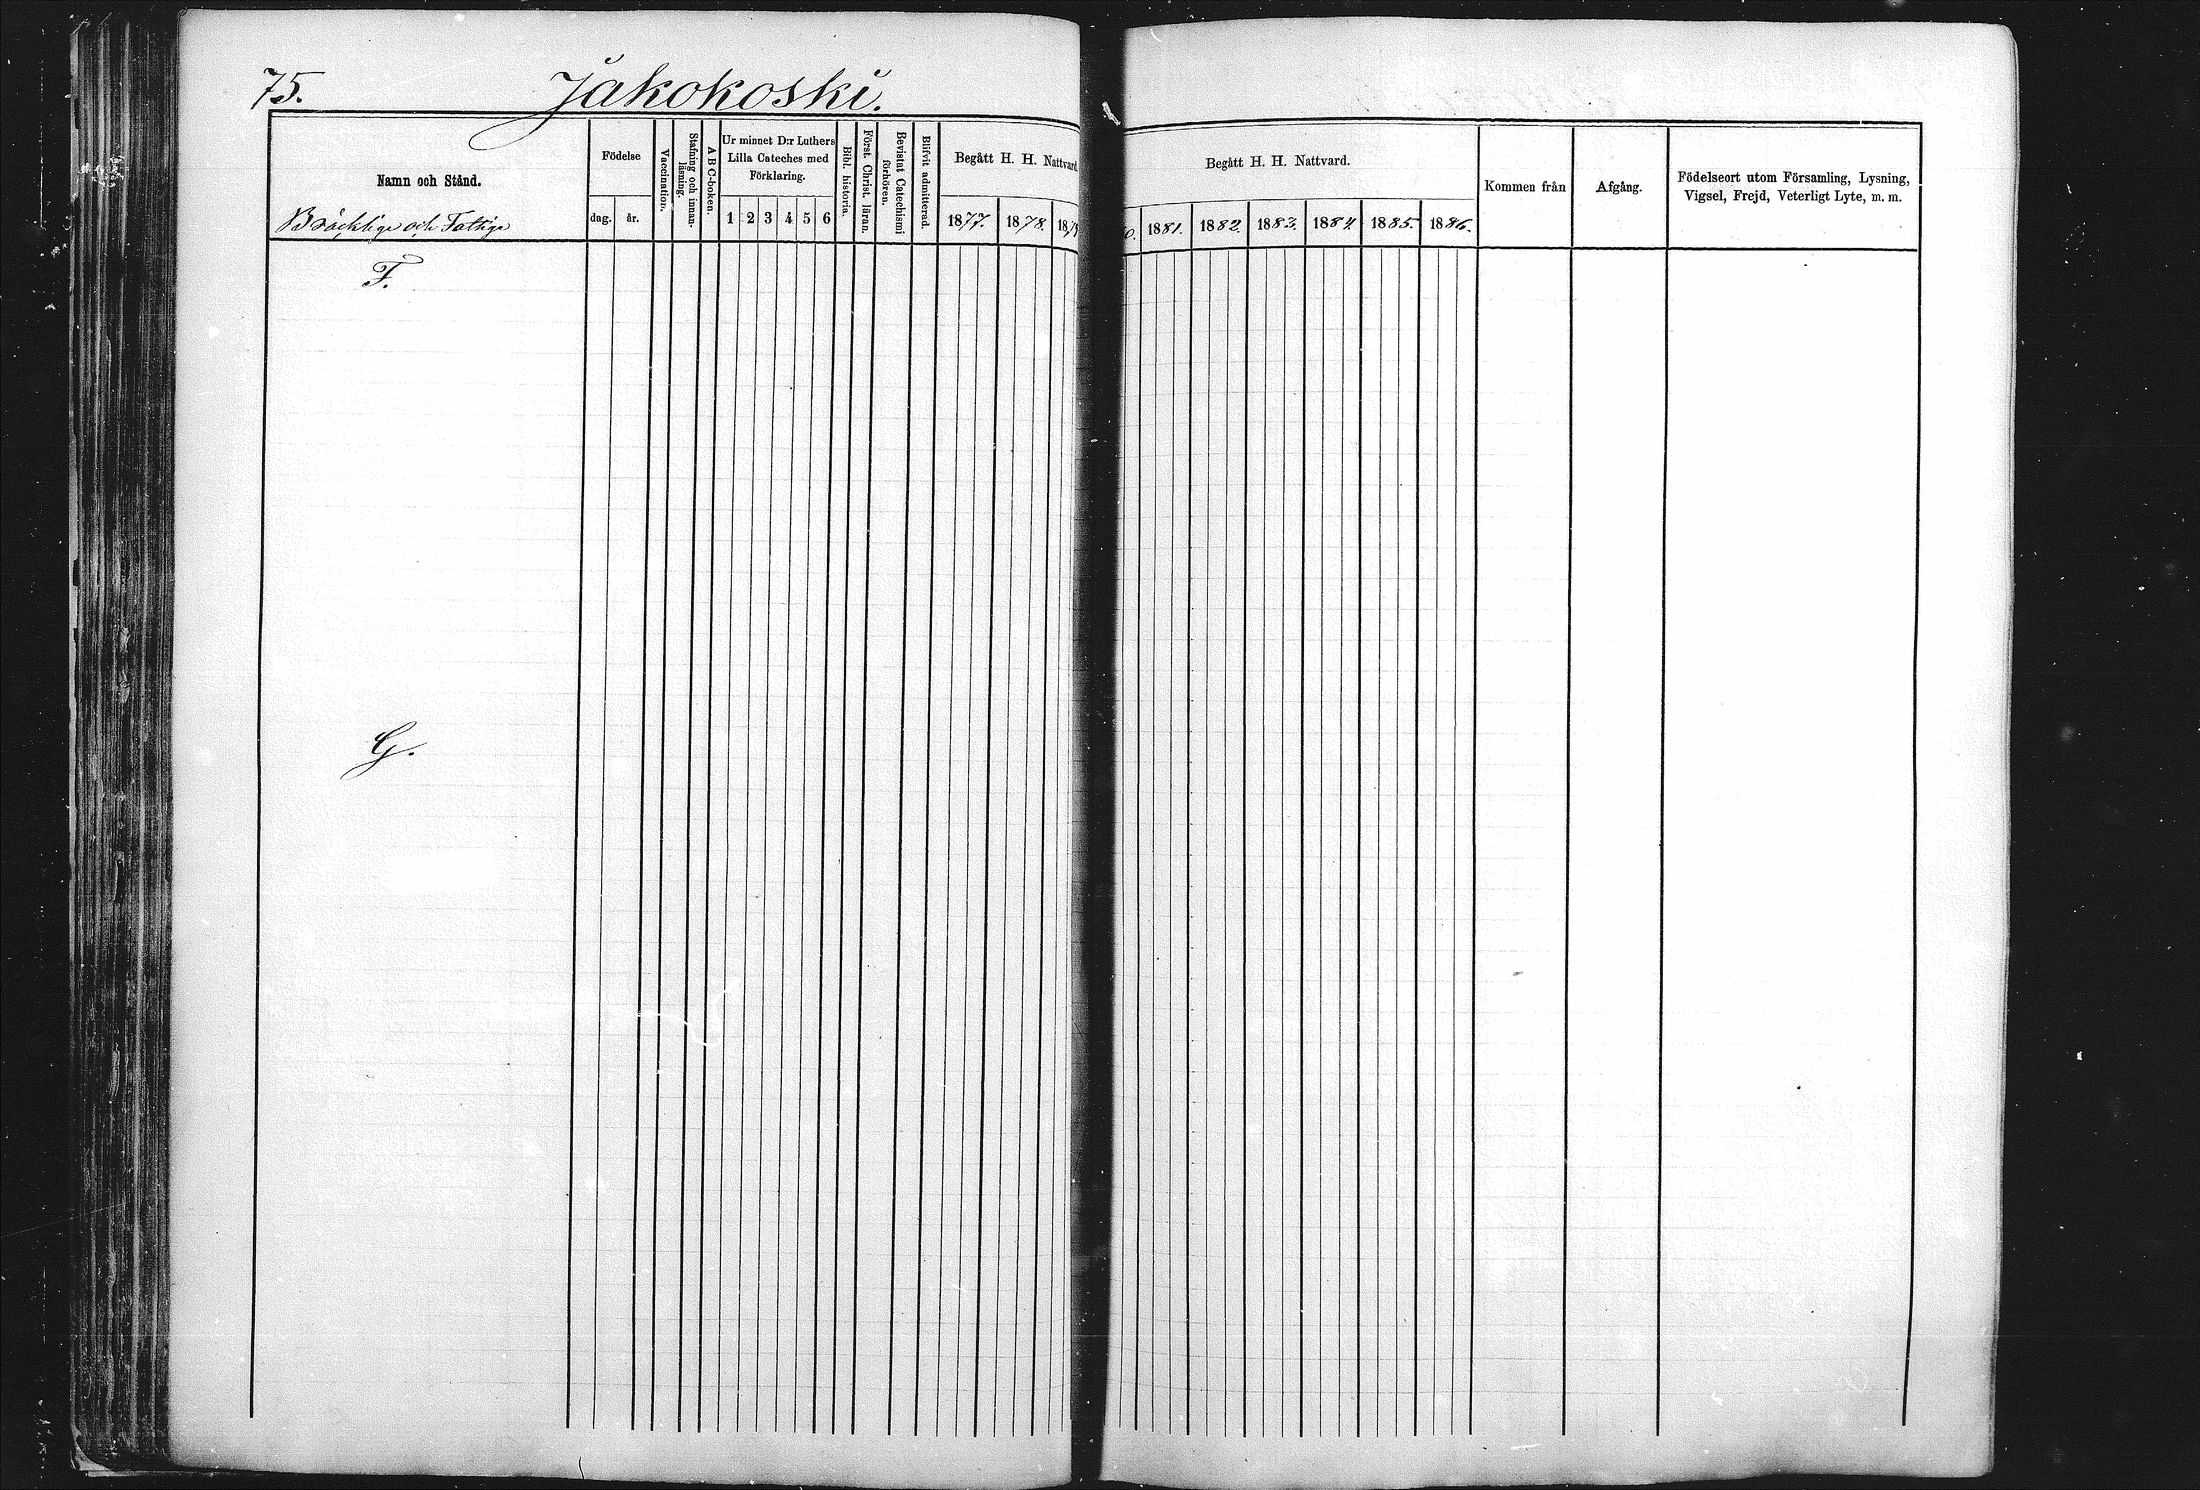 75.
Jakokoski.
Namn och Stånd.
Bräcklige och Fattige
Födelse
dag. år.
Vaccination.
Stafning och innan-
läsning.
A B C-boken.
Ur minnet D:r Luthers
Lilla Cateches med
Förklaring.
1 2 3 4 5 6
Bibl. historia.
Först. Christ. läran.
Bevistat Catechismi
förhören.
Blifvit admitterad.
Begått H. H. Nattvard
1877. 1878. 187
F.
G.
Begått H. H. Nattvard.
0. 1881. 1882. 1883. 1884. 1885. 1886.
Kommen från
Afgång.
Födelseort utom Församling, Lysning,
Vigsel, Frejd, Veterligt Lyte, m. m.